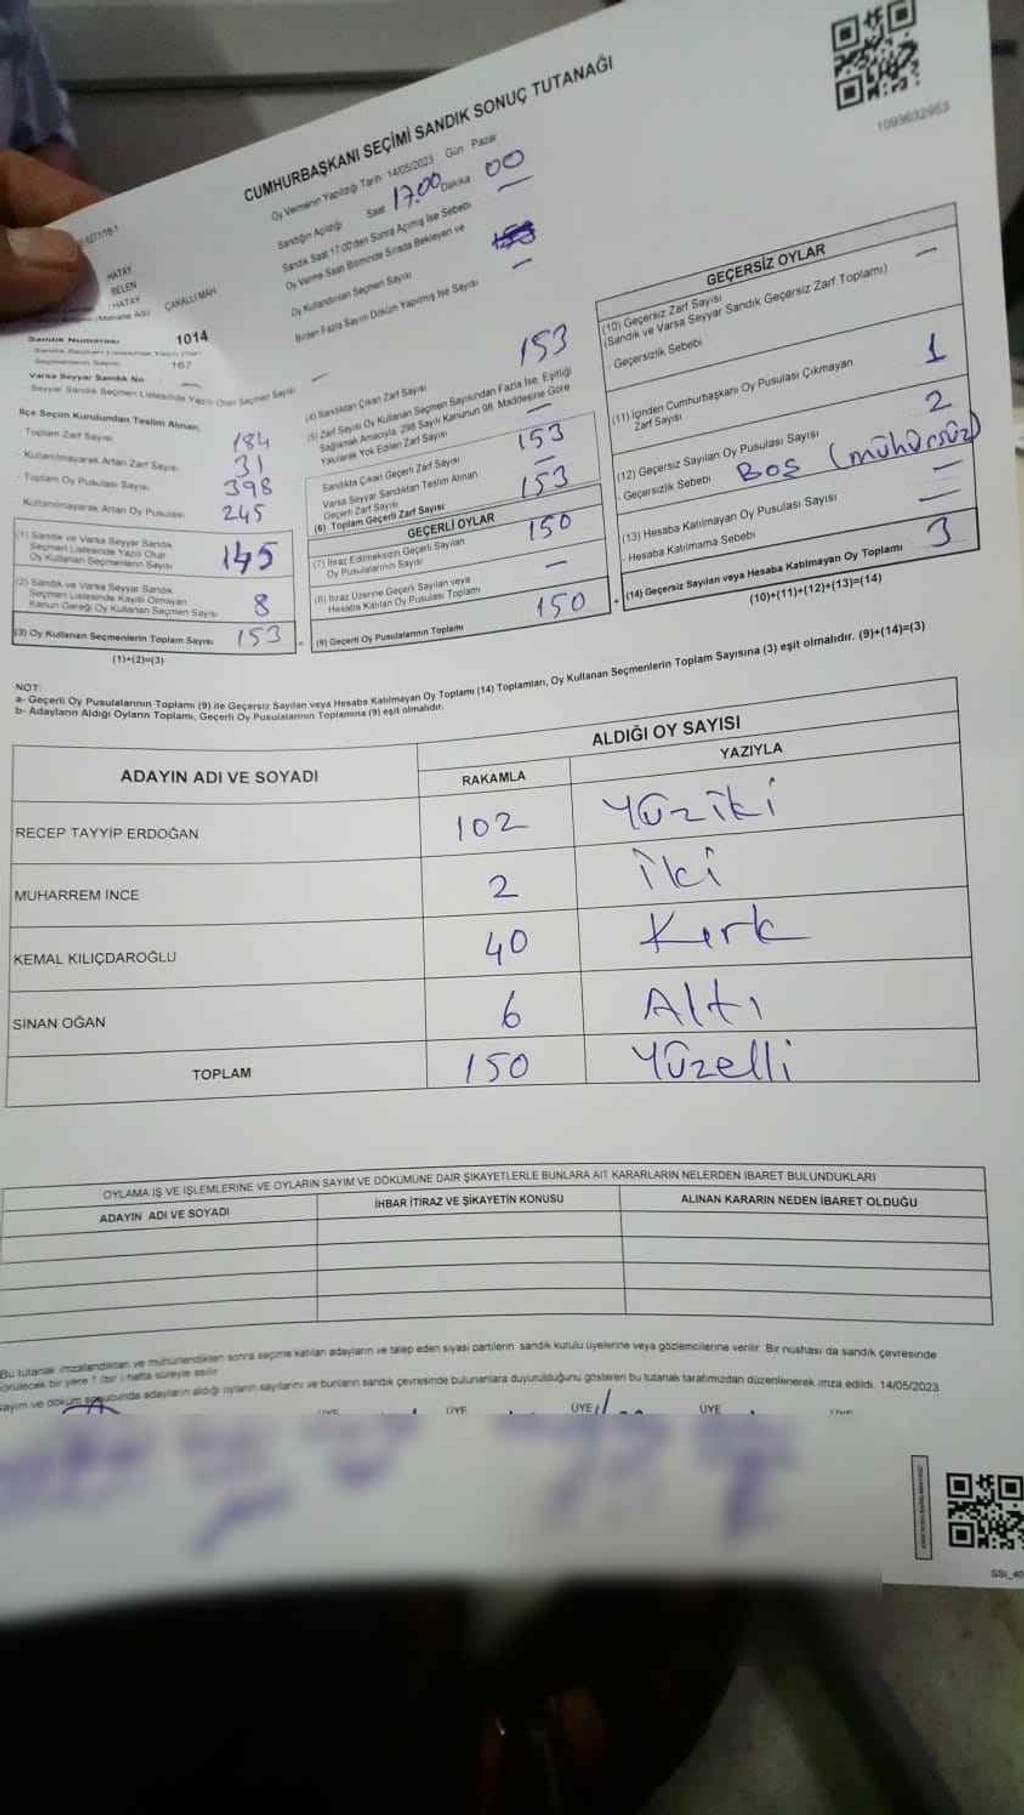 1093632953
CUMHURBAŞKANI SEÇİMİ SANDIK SONUÇ TUTANAĞI
Oy Vermenin Yapıldığı Tarih 14/05/2023 Gün Pazar
Sandığın Açıldığı Saat 17.00 Dakika 00
Sandık Saat 17.00'den Sonra Açılmış İse Sebebi —
Oy Verme Saati Bitiminde Sırada Bekleyen ve
Oy Kullandırılan Seçmen Sayısı
Birden Fazla Sayım Döküm Yapılmış İse Sayısı —
HATAY
BELEN
HATAY
ÇAKALLI MAH
Sandık Numarası 1014
Sandık Seçmen Listesinde Yazılı Olan
Seçmenlerin Sayısı 167
Varsa Seyyar Sandık No —
Seyyar Sandık Seçmen Listesinde Yazılı Olan Seçmen Sayısı —
İlçe Seçim Kurulundan Teslim Alınan
Toplam Zarf Sayısı 184
- Kullanılmayarak Artan Zarf Sayısı 31
- Toplam Oy Pusulası Sayısı 398
Kullanılmayarak Artan Oy Pusulası 245
(1) Sandık ve Varsa Seyyar Sandık
Seçmen Listesinde Yazılı Olup
Oy Kullanan Seçmenlerin Sayısı 145
(2) Sandık ve Varsa Seyyar Sandık
Seçmen Listesinde Kayıtlı Olmayan
Kanun Gereği Oy Kullanan Seçmen Sayısı 8
(3) Oy Kullanan Seçmenlerin Toplam Sayısı 153
(1)+(2)=(3)
(4) Sandıktan Çıkan Zarf Sayısı 153
(5) Zarf Sayısı Oy Kullanan Seçmen Sayısından Fazla İse, Eşitliği
Sağlamak Amacıyla, 298 Sayılı Kanunun 98. Maddesine Göre
Yakılarak Yok Edilen Zarf Sayısı —
Sandıkta Çıkan Geçerli Zarf Sayısı 153
Varsa Seyyar Sandıktan Teslim Alınan
Geçerli Zarf Sayısı —
(6) Toplam Geçerli Zarf Sayısı 153
GEÇERLİ OYLAR
(7) İtiraz Edilmeksizin Geçerli Sayılan
Oy Pusulalarının Sayısı 150
(8) İtiraz Üzerine Geçerli Sayılan veya
Hesaba Katılan Oy Pusulası Toplamı —
= (9) Geçerli Oy Pusulalarının Toplamı 150
GEÇERSİZ OYLAR
(10) Geçersiz Zarf Sayısı
(Sandık ve Varsa Seyyar Sandık Geçersiz Zarf Toplamı) —
- Geçersizlik Sebebi
(11) İçinden Cumhurbaşkanı Oy Pusulası Çıkmayan
Zarf Sayısı 1
(12) Geçersiz Sayılan Oy Pusulası Sayısı 2
- Geçersizlik Sebebi BOŞ (mühürsüz)
(13) Hesaba Katılmayan Oy Pusulası Sayısı —
- Hesaba Katılmama Sebebi —
+ (14) Geçersiz Sayılan veya Hesaba Katılmayan Oy Toplamı 3
(10)+(11)+(12)+(13)=(14)
NOT:
a- Geçerli Oy Pusulalarının Toplamı (9) ile Geçersiz Sayılan veya Hesaba Katılmayan Oy Toplamı (14) Toplamları, Oy Kullanan Seçmenlerin Toplam Sayısına (3) eşit olmalıdır. (9)+(14)=(3)
b- Adayların Aldığı Oyların Toplamı, Geçerli Oy Pusulalarının Toplamına (9) eşit olmalıdır.
ADAYIN ADI VE SOYADI
ALDIĞI OY SAYISI
RAKAMLA YAZIYLA
RECEP TAYYİP ERDOĞAN 102 Yüziki
MUHARREM İNCE 2 İki
KEMAL KILIÇDAROĞLU 40 Kırk
SİNAN OĞAN 6 Altı
TOPLAM 150 Yüzelli
OYLAMA İŞ VE İŞLEMLERİNE VE OYLARIN SAYIM VE DÖKÜMÜNE DAİR ŞİKAYETLERLE BUNLARA AİT KARARLARIN NELERDEN İBARET BULUNDUKLARI
ADAYIN ADI VE SOYADI İHBAR İTİRAZ VE ŞİKAYETİN KONUSU ALINAN KARARIN NEDEN İBARET OLDUĞU
Bu tutanak imzalandıktan ve mühürlendikten sonra seçime katılan adayların ve talep eden siyasi partilerin sandık kurulu üyelerine veya gözlemcilerine verilir. Bir nüshası da sandık çevresinde
görülecek bir yere 1 (bir) hafta süreyle asılır
sayım ve döküm sonucunda adayların aldığı oyların sayılarını ve bunların sandık çevresinde bulunanlara duyurulduğunu gösteren bu tutanak tarafımızdan düzenlenerek imza edildi. 14/05/2023
ÜYE ÜYE ÜYE ÜYE